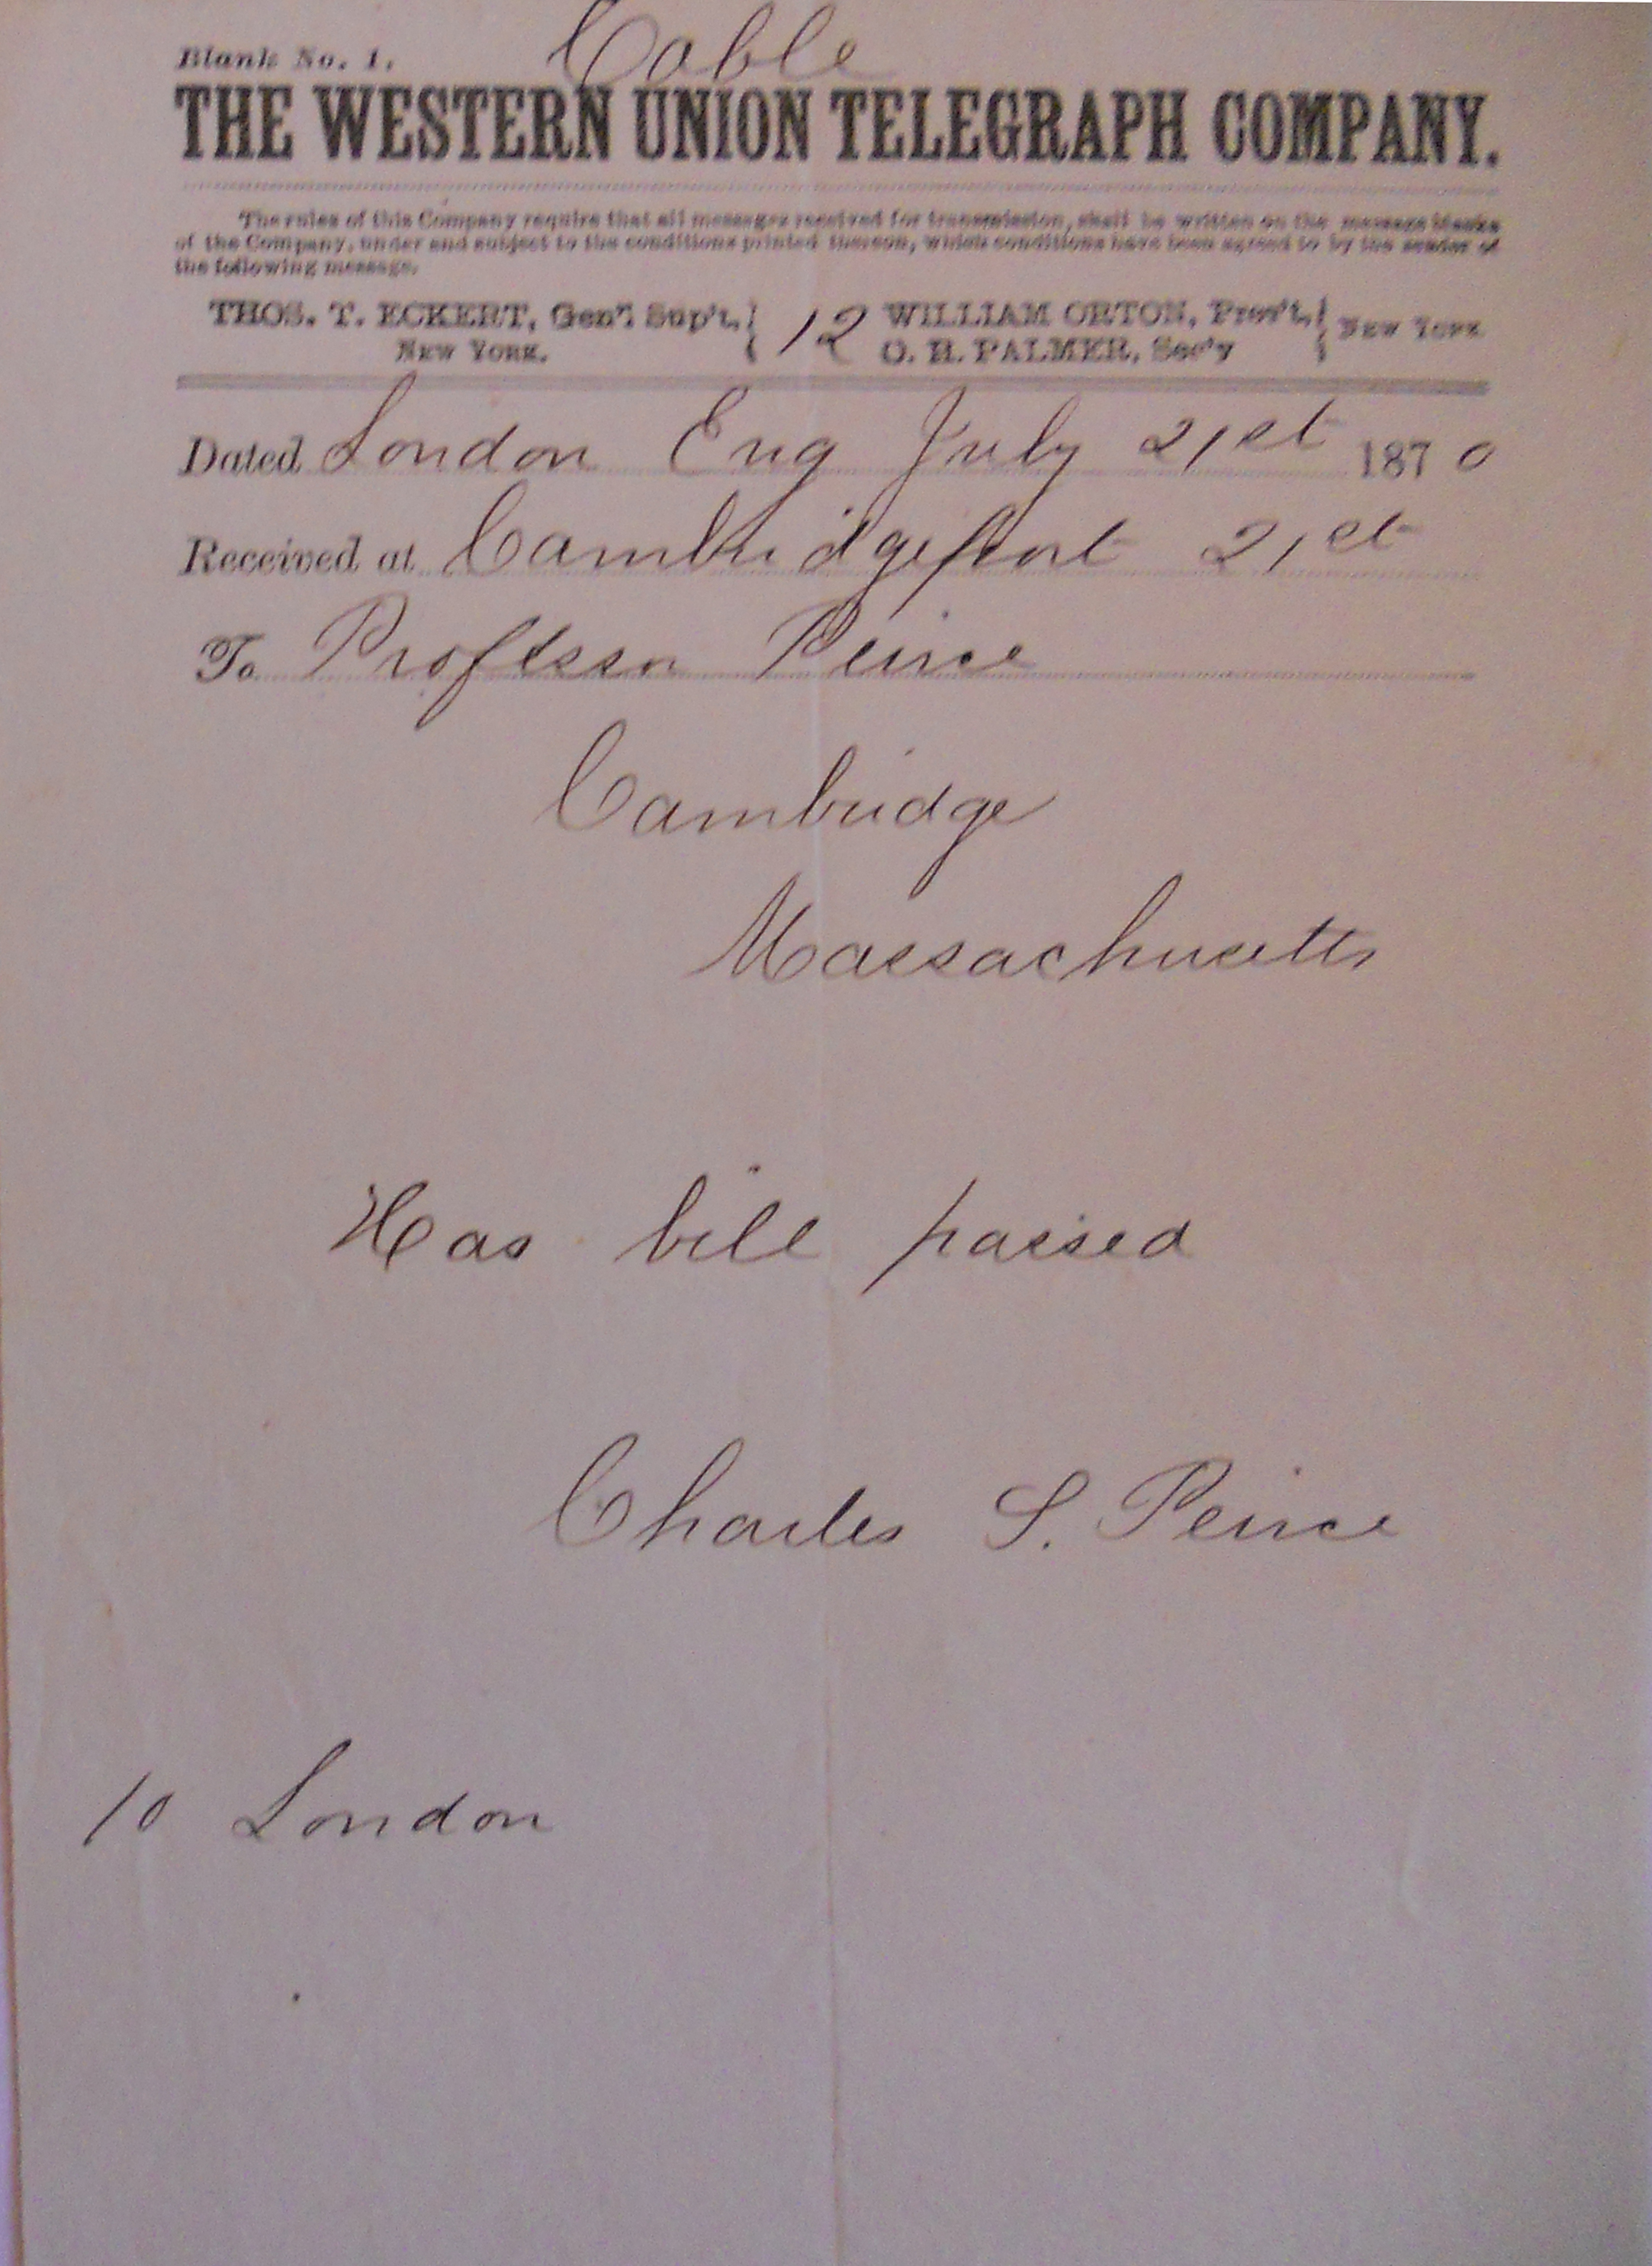 Cable
Blank No. 1.
THE WESTERN UNION TELEGRAPH COMPANY.
The rules of this Company require that all messages received for transmission, shall be written on the message blanks
of the Company, under and subject to the conditions printed thereon, which conditions have been agreed to by the sender of
the following message.
THOS. T. ECKERT, Gen'l Sup't, 12 WILLIAM ORTON, Pres't, NEW YORK
NEW YORK. O. H. PALMER, Sec'y
Dated London Eng July 21st 1870
Received at Cambridgeport 21st
To Professor Peirce
Cambridge
Massachusetts
Has bill passed
Charles S. Peirce
10 London